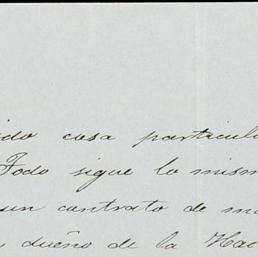 ido casa particula
Todo sigue lo mism
un contrato de m
dueño de la Hac